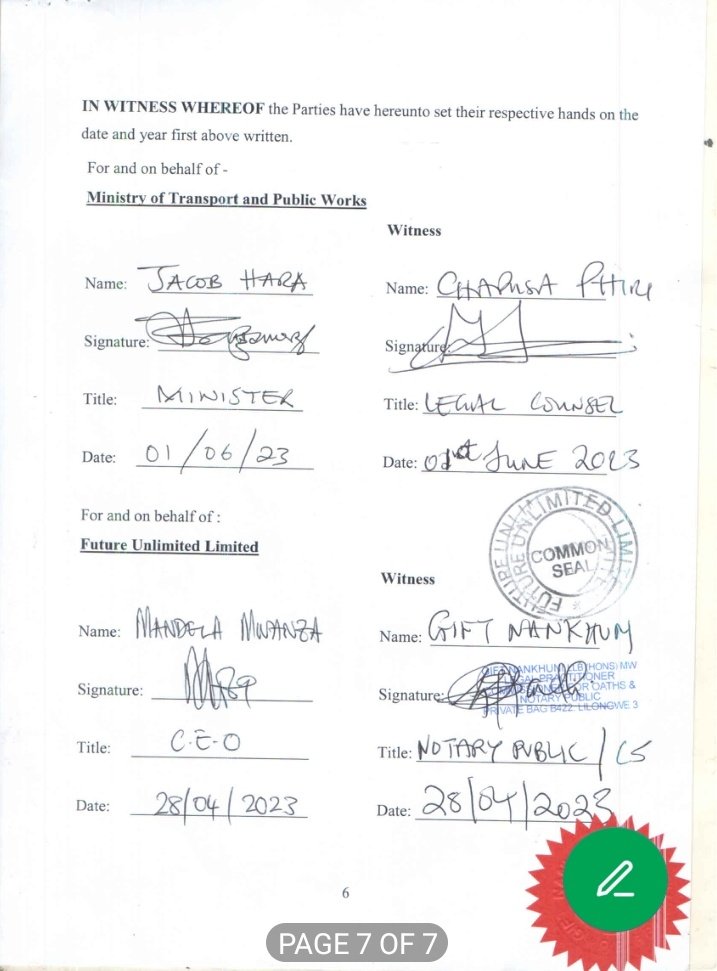 IN WITNESS WHEREOF the Parties have hereunto set their respective hands on the
date and year first above written.
For and on behalf of -
Ministry of Transport and Public Works
Witness
Name: JACOB HARA
Name: CHAPUSA PHIRI
Signature:
Signature:
Title: MINISTER
Title: LEGAL COUNSEL
Date: 01/06/23
Date: 01st JUNE 2023
For and on behalf of :
Future Unlimited Limited
FUTURE UNLIMITED LIMITED
COMMON
SEAL
Witness
Name: MANDELA MWANZA
Name: GIFT NANKHUM
Signature:
Signature:
NANKHUM LLB (HONS) MW
LEGAL PRACTITIONER
FOR OATHS &
NOTARY PUBLIC
PRIVATE BAG B422, LILONGWE 3
Title: C.E.O
Title: NOTARY PUBLIC / CS
Date: 28/04/2023
Date: 28/04/2023
6
PAGE 7 OF 7